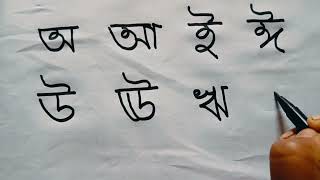 অ আ ই ঈ
উ ঊ ঋ